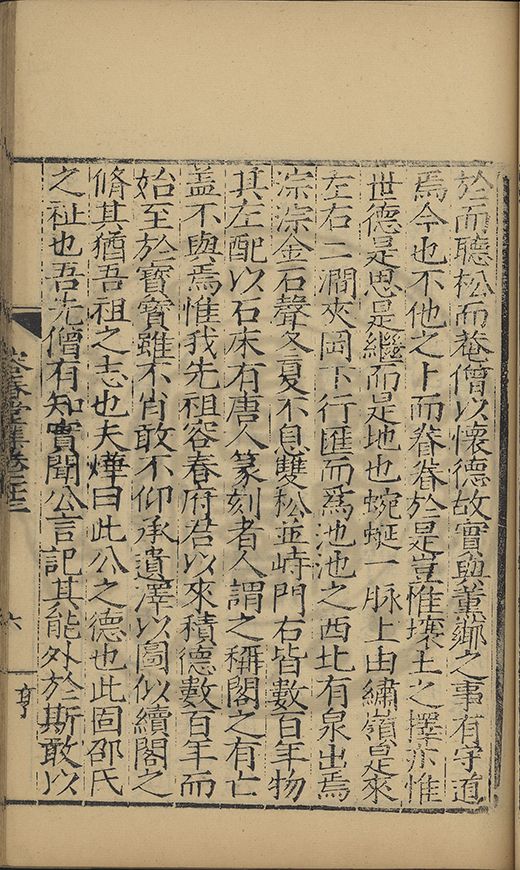 於而聽松而菴僧以懷德故實與董鄉之事有守道
焉今也不他之卜而眷眷於是豈惟壤土之擇亦惟
世德是思是繼而是地也蜿蜒一脉上由繡嶺是來
左右二澗夾岡下行匯而爲池池之西北有泉出焉
淙淙金石聲冬夏不息雙松並峙門右皆數百年物
其左配以石床有唐人篆刻者人謂之稱閣之有亡
盖不與焉惟我先祖容春府君以來積德數百年而
始至於寳寳雖不肖敢不仰承遺澤以圖似續閣之
脩其猶吾祖之志也夫燁曰此公之德也此固邵氏
之祉也吾先僧有知實聞公言記其能外於斯敢以
容春堂集卷
六
亨